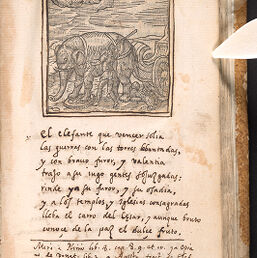 El elefante que vencer solia
las guerras con las torres leuantadas,
y con brauo furor, y valentia
traxo a su iugo gentes subiugadas:
rinde ya su furor, y su osadia,
y a los templos, y Iglesias consagradas
lleba el carro del Cesar, y aunque bruto
conoce de la paz el dulce fruto.
lib. 8. cap.